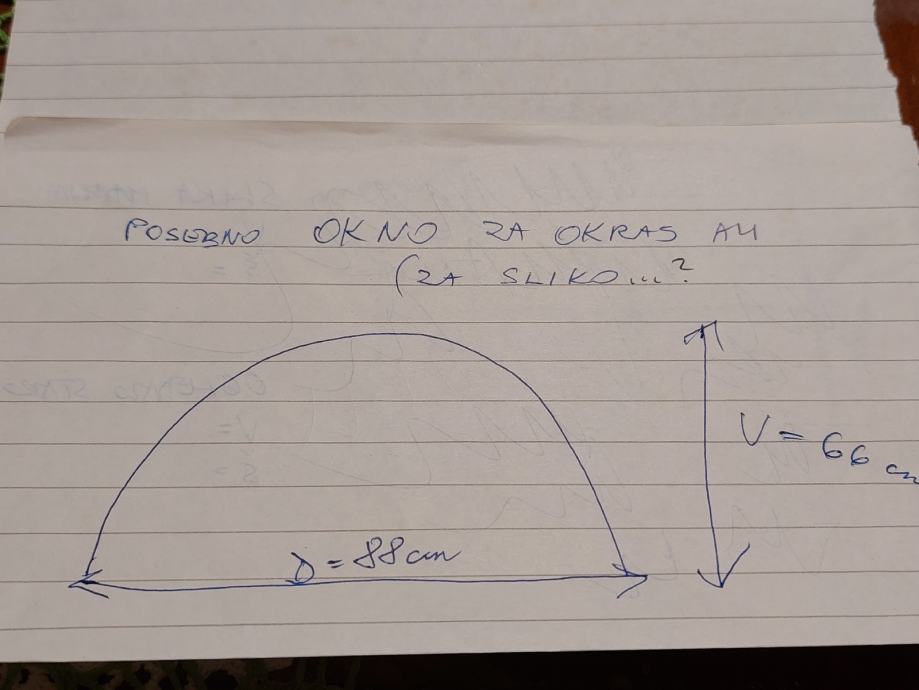 POSEBNO OKNO ZA OKRAS ALI
(ZA SLIKO...?
V = 66 cm
D = 88 cm